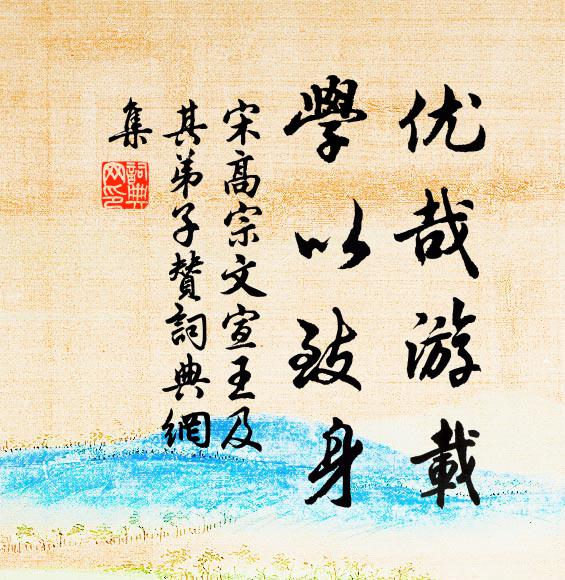 优哉游載
學以致身
宋高宗文宣王及
其弟子贊詞典網
集
詞典
网印